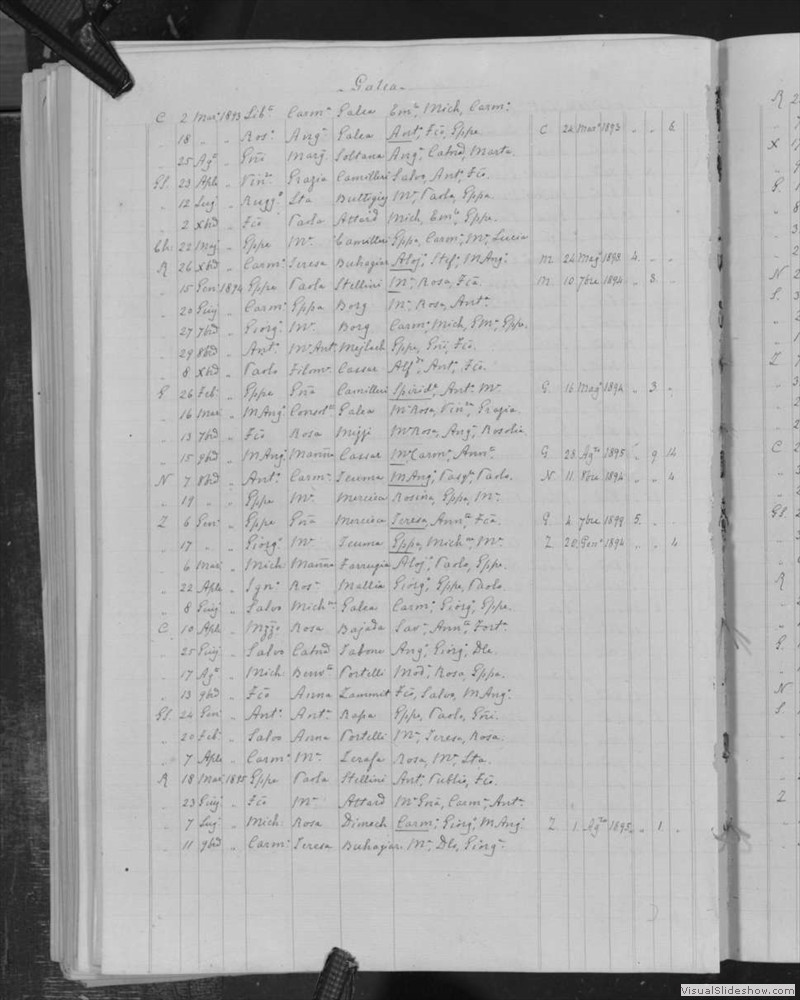 Galea
C 2 Mar. 1893 Lib.a Carm. Galea Em.a, Mich, Carm.
18 " " Ros. Ang. Galea Ant., Fco, Eppa C 24 Mar. 1893 .. .. 6
25 Ag. " Gna Marg Soltana Ang., Catnd, Marta
Gh. 23 Aple " Vin. Grazia Camilleri Salvo, Ant., Fco.
12 Lug " Rugg. Sta Buttigieg M., Paola, Eppa.
2 Xbd " Fco Paola Attard Mich, Em.a, Eppe.
22 Mag " Eppe M. Camilleri Eppa, Carm., M., Lucia
R 26 Xbd " Carm. Teresa Buhagiar Aloj., Stef., M Ang. M. 24 Mag. 1898 4.
15 Gen. 1894 Eppe Paola Stellini M., Rosa, Fca. M. 10 7bre 1894 .. 8.
20 Giug " Carm. Eppa Borg M., Rosa, Ant.
27 7bd " Giorg. M. Borg Carm., Mich, Em., Eppe.
29 8bd " Ant. M. Ant. Mejlach Eppe, Gni, Fco.
8 Xbd " Paolo Filom. Cassar Alf., Ant., Fco.
G 26 Feb. " Eppe Gna Camilleri Spirid., Ant., M. G. 16 Mag. 1894 .. 3.
16 Mar. " M Ang. Consol. Galea M. Rosa, Vin., Grazia
13 7bd " Fco Rosa Mizzi M. Rosa, Ang., Rosolia
15 9bd " M Ang. Manna Cassar M. Carm., Ann. G 28. Ag. 1895 .. 9 14
N 7 8bd " Ant. Carm. Teuma M Ang., Pasq., Paolo. N 11. 9bre 1894 .. .. 4
19 " " Eppe M. Mercieca Rosina, Eppe, M.
Z 6 Gen. " Eppe Gna Mercieca Teresa, Ann., Fca. G. 4 7bre 1899 5.
17 " " Giorg. M. Teuma Eppa, Mich., M. Z 20 Gen. 1894 .. .. 4
6 Mar. " Mich. Manna Farrugia Aloj., Paola, Eppe.
22 Aple " Ign. Ros. Mallia Giorg., Eppe, Paola.
8 Giug " Salvo Mich. Galea Carm., Giorg., Eppe.
C 10 Aple " Mzzo Rosa Bajada Sav., Ann., Fort.
25 Giug " Salvo Catnd Tabone Ang., Giorg., Dla.
17 Ag. " Mich. Benv. Portelli Mod., Rosa, Eppa.
13 9bd " Fco Anna Zammit Fco, Salvo, M Ang.
24 Gen. " Ant. Ant. Rapa Eppe, Paola, Gni.
20 Feb. " Salvo Anna Portelli M., Teresa, Rosa.
7 Aple " Carm. M. Zerafa Rosa, M., Sta.
R 18 Mar. 1895 Eppe Paola Stellini Ant., Publio, Fco.
23 Giug " Fco M. Attard M. Gna, Carm., Ant.
7 Lug " Mich. Rosa Dimech Carm., Giorg., M Ang. Z 1. Ag. 1895 .. 1
11 9bd " Carm. Teresa Buhagiar M., Dla, Giorg.
VisualSlideshow.com